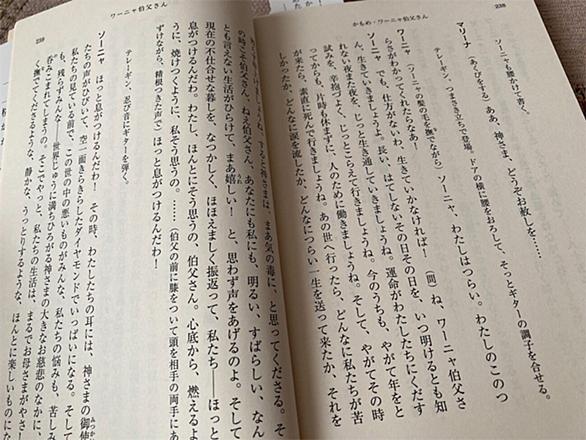 かもめ・ワーニャ伯父さん
238
ソーニャも腰かけて書く。
マリーナ （あくびをする）ああ、神さま、どうぞお赦しを……
テレーギン、つまさき立ちで登場。ドアの横に腰をおろして、そっとギターの調子を合せる。
ワーニャ （ソーニャの髪の毛を撫でながら）ソーニャ、わたしはつらい。わたしのこのつ
らさがわかってくれたらなあ！
ソーニャ でも、仕方がないわ、生きていかなければ！ （間）ね、ワーニャ伯父さ
ん、生きていきましょうよ。長い、はてしないその日その日を、いつ明けるとも知
れない夜また夜を、じっと生き通していきましょうね。運命がわたしたちにくだす
試みを、辛抱づよく、じっとこらえて行きましょうね。今のうちも、やがて年をと
ってからも、片時も休まずに、人のために働きましょうね。そして、やがてその時
が来たら、素直に死んで行きましょうね。あの世へ行ったら、どんなに私たちが苦
しかったか、どんなに涙を流したか、どんなにつらい一生を送って来たか、それを
ワーニャ伯父さん
239
すると神さまは、まあ気の毒に、と思ってくださる。そ
の時こそ伯父さん、ねえ伯父さん、あなたにも私にも、明るい、すばらしい、なん
とも言えない生活がひらけて、まあ嬉しい！ と、思わず声をあげるのよ。そして
現在の不仕合せな暮しを、なつかしく、ほほえましく振返って、私たち――ほっと
息がつけるんだわ。わたし、ほんとにそう思うの、伯父さん。心底から、燃えるよ
うに、焼けつくように、私そう思うの。……（伯父の前に膝をついて頭を相手の両手にあ
ずけながら、精根つきた声で）ほっと息がつけるんだわ！
テレーギン、忍び音にギターを弾く。
ソーニャ ほっと息がつけるんだわ！ その時、わたしたちの耳には、神さまの御使
たちの声がひびいて、空一面きらきらしたダイヤモンドでいっぱいになる。そして
私たちの見ている前で、この世の中の悪いものがみんな、私たちの悩みも、苦しみ
も、残らずみんな――世界じゅうに満ちひろがる神さまの大きなお慈悲のなかに、
呑みこまれてしまうの。そこでやっと、私たちの生活は、まるでお母さまがやさし
く撫でてくださるような、静かな、うっとりするような、ほんとに楽しいものにな